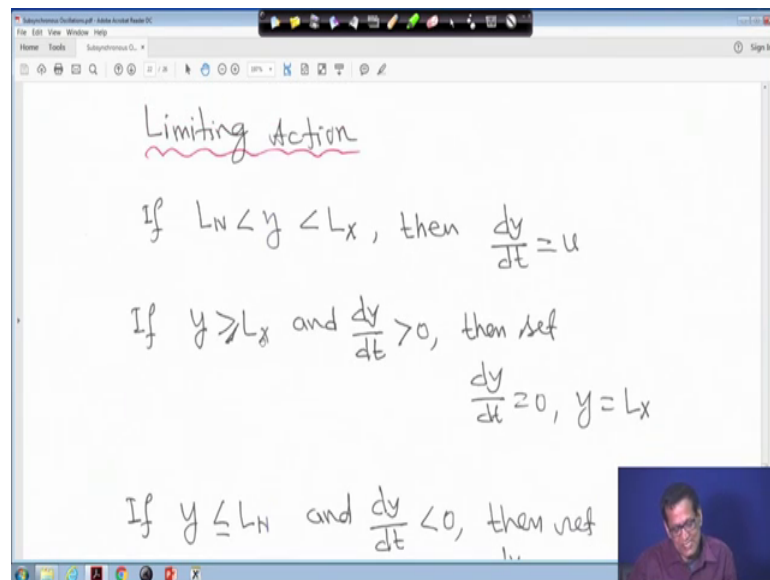 Subsynchronous Oscillations.pdf - Adobe Acrobat Reader DC
File Edit View Window Help
Home Tools Subsynchronous O... × Sign In
Limiting Action
If L_N < y < L_X, then dy/dt = u
If y ≥ L_X and dy/dt > 0, then set
dy/dt = 0, y = L_X
If y ≤ L_N and dy/dt < 0, then set